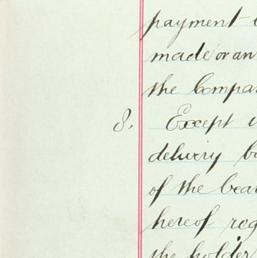 payment
made or an
the Compa
8. Except
delivery b
of the bea
hereof reg
the holder